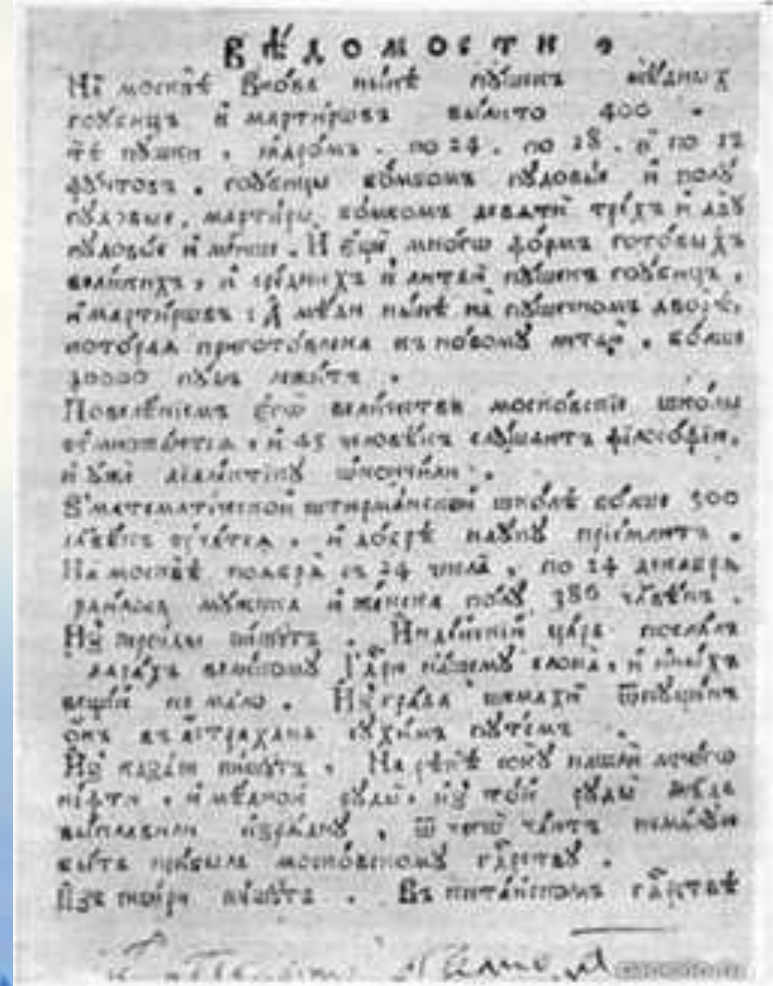 ВѢДОМОСТИ
На москвѣ вновь нынѣ пушекъ мѣдныхъ
гоубицъ и мартировъ вылито 400 .
тѣ пушки , ядромъ . по 24 . по 18 . и по 12
фунтовъ . гоубицы бомбомъ пудовые и полу
пудовые . мартиры бомбомъ девяти трехъ и дву
пудовые и менше . И еще много формъ готовыхъ
великихъ , и среднихъ к литью пушекъ гоубицъ ,
и мартировъ : А мѣди нынѣ на пушечномъ дворѣ ,
которая приготовлена къ новому литью . болше
пудъ лежитъ .
Повелѣниемъ его величества московские школы
умножаются , и 45 человѣкъ слушаютъ философию ,
и уже диалектику окончили .
В математической штюрманской школѣ болше 300
учатся , и добрѣ науку приемлютъ .
На москвѣ ноября съ 24 числа , по 24 декабря
родилось мужска и женска полу 386 .
Из персиды пишутъ . Индѣйский царь послалъ
въ дарахъ великому нашему слона , и иныхъ
вещей не мало . Из града шемахи отпущенъ
онъ въ астрахань сухимъ путемъ .
Из казани пишутъ . На рѣкѣ соку нашли много
нефти , и мѣдной руды , из той руды мѣдь
выплавили изрядну , от чего чаютъ немалую
быть прибыль московскому .
Изъ сибири пишутъ . Въ китайскомъ